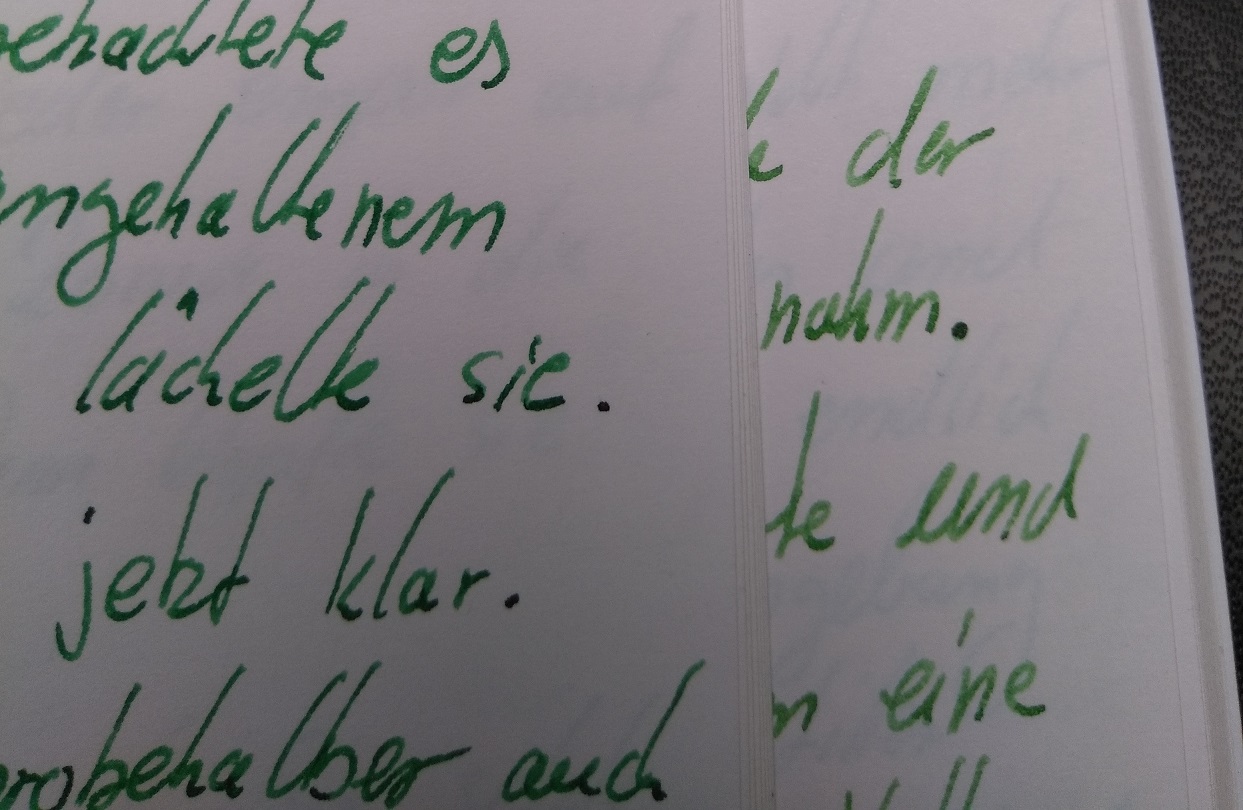 es
angehaltenem
lächelte sie.
jetzt klar.
probehalber auch
der
nahm.
te und
eine